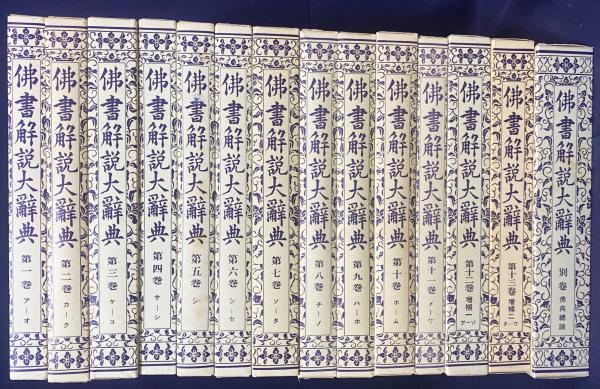 佛書解説大辭典 第一卷 アーオ
佛書解説大辭典 第二卷 カーク
佛書解説大辭典 第三卷 ケーコ
佛書解説大辭典 第四卷 サーシ
佛書解説大辭典 第五卷 シ
佛書解説大辭典 第六卷 シーセ
佛書解説大辭典 第七卷 ソータ
佛書解説大辭典 第八卷 チーノ
佛書解説大辭典 第九卷 ハーホ
佛書解説大辭典 第十卷 ホーム
佛書解説大辭典 第十一卷 メーワ
佛書解説大辭典 第十二卷 增補一 アーソ
佛書解説大辭典 第十三卷 增補二 ターワ
佛書解説大辭典 別卷 佛典總論